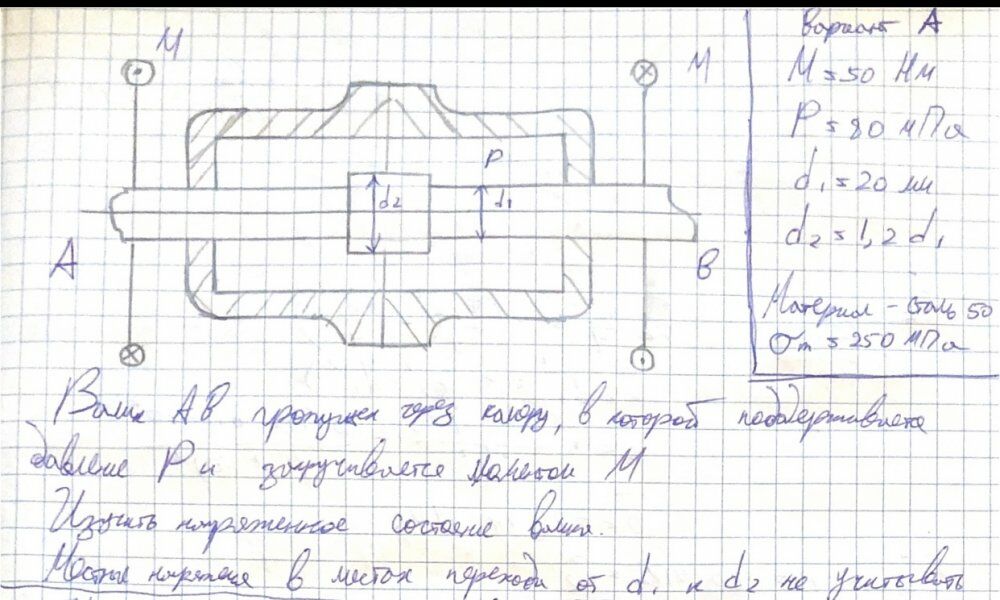 M
M
P
d2
d1
A
B
Вариант А
M = 50 Нм
P = 80 мПа
d1 = 20 мм
d2 = 1,2 d1
Материал - сталь 50
σт = 250 МПа
Валик АВ пропущен через камеру, в которой поддерживается
давление P и закручивается моментом M
Изучить напряженное состояние валика.
Местные напряжения в местах перехода от d1 к d2 не учитывать